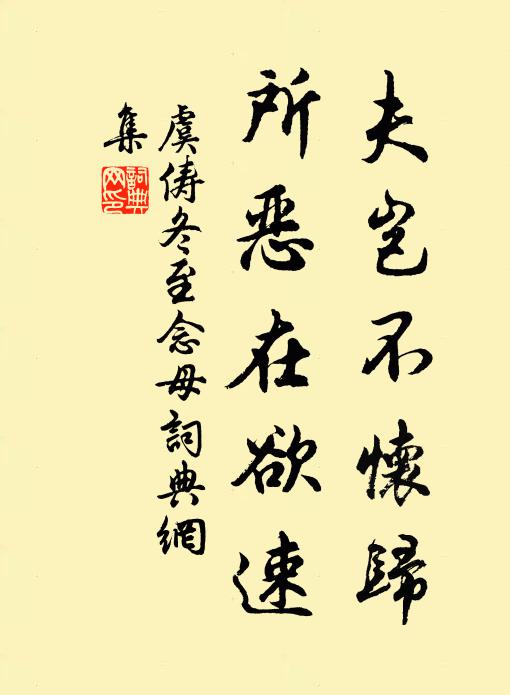 夫岂不懷歸
所惡在欲速
虞俦冬至念母詞典網
集
詞典
网印